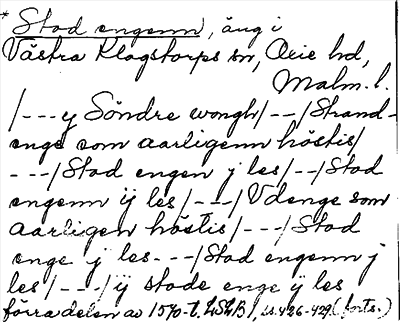 * Stad engenn, äng i
Västra Klagstorps sn, Oxie hd,
Malm. l.
/---y Söndre wongh/--/Strand-
enge som aarligenn höstis/
---/Stad engen j les/--/Stad
engenn ij les/---/Vdenge som
aarligen höstis/---/Stad
enge j les---/Stad engenn j
les/---/ij stade enge ij les
förra delen av 1570-t. LSLB), s. 426-429 (forts.)